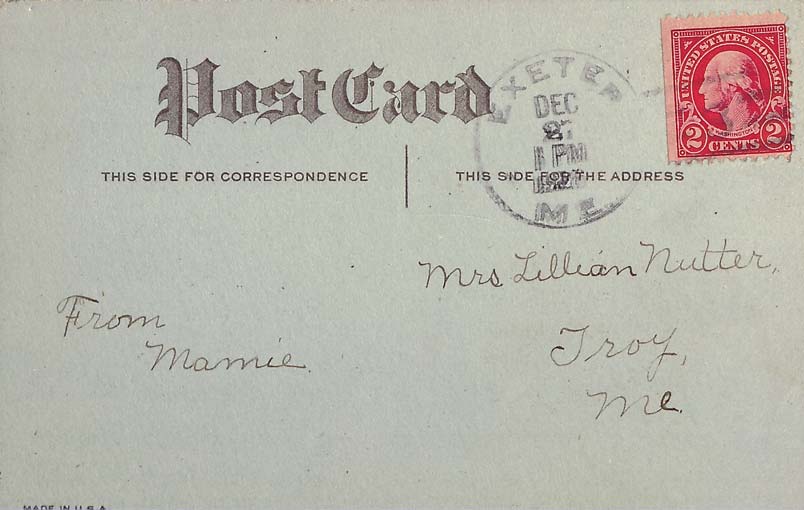 Post Card
THIS SIDE FOR CORRESPONDENCE
THIS SIDE FOR THE ADDRESS
EXETER
DEC
27
1 PM
ME.
UNITED STATES POSTAGE
WASHINGTON
2 CENTS 2
Mrs Lillian Nutter,
Troy,
Me.
From
Mamie.
MADE IN U.S.A.